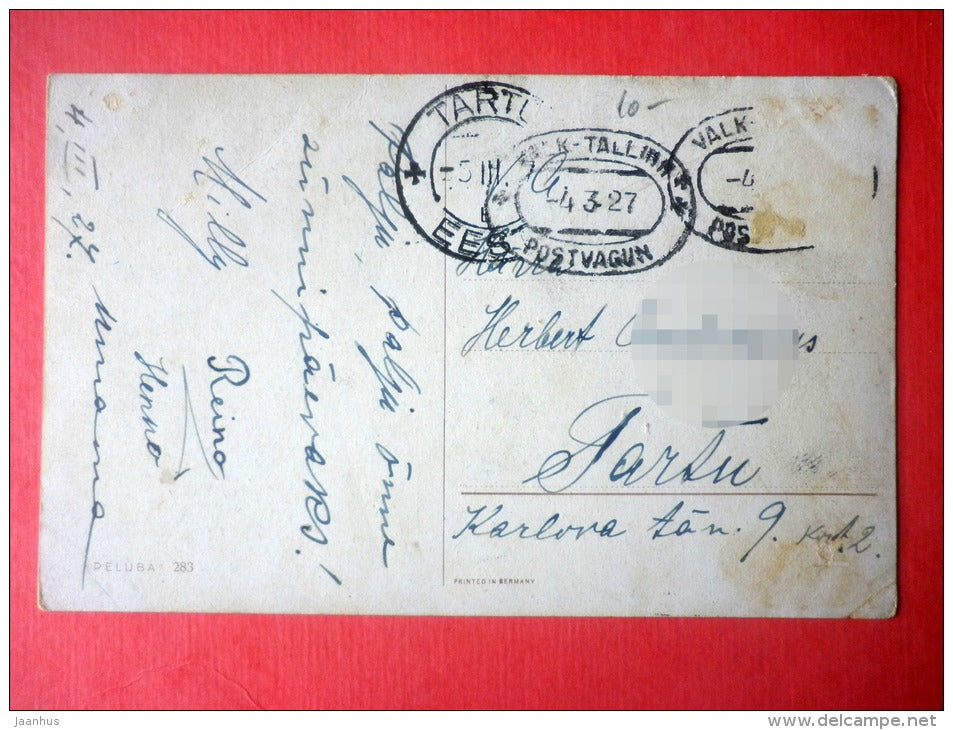 Palju, palju õnne
sünnipäevaks!
Milly
Reino
Henno
4. III, 27.
PELUBA 283
PRINTED IN GERMANY
10-
TARTU
-5 III
EES
LK-TALLINN
-4 3 27
POSTVAGUN
VALK-
-4
POS
Härra
Herbert
Tartu
Karlova tän. 9. Kort. 2.
Jaanhus
www.delcampe.net